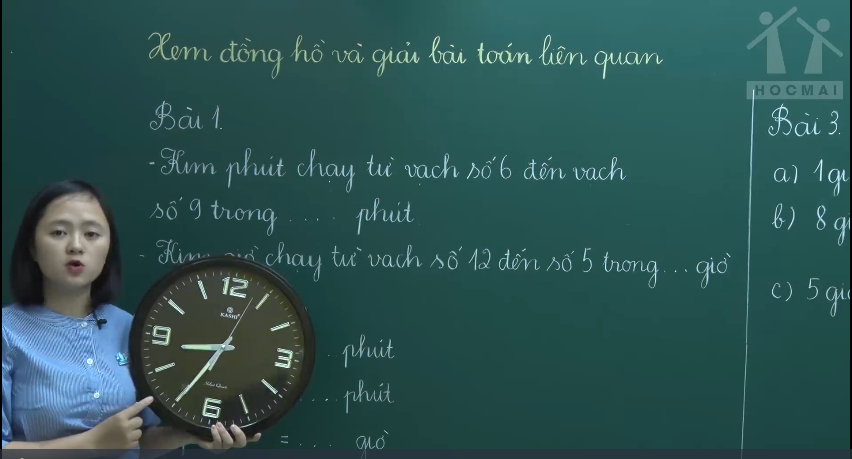 Xem đồng hồ và giải bài toán liên quan
HOCMAI
Bài 1.
- Kim phút chạy từ vạch số 6 đến vạch
số 9 trong .... phút
- Kim giờ chạy từ vạch số 12 đến số 5 trong... giờ
.. phút
... phút
= .... giờ
Bài 3.
a) 1 gi
b) 8 g
c) 5 giờ
12
KASHI
9
3
6